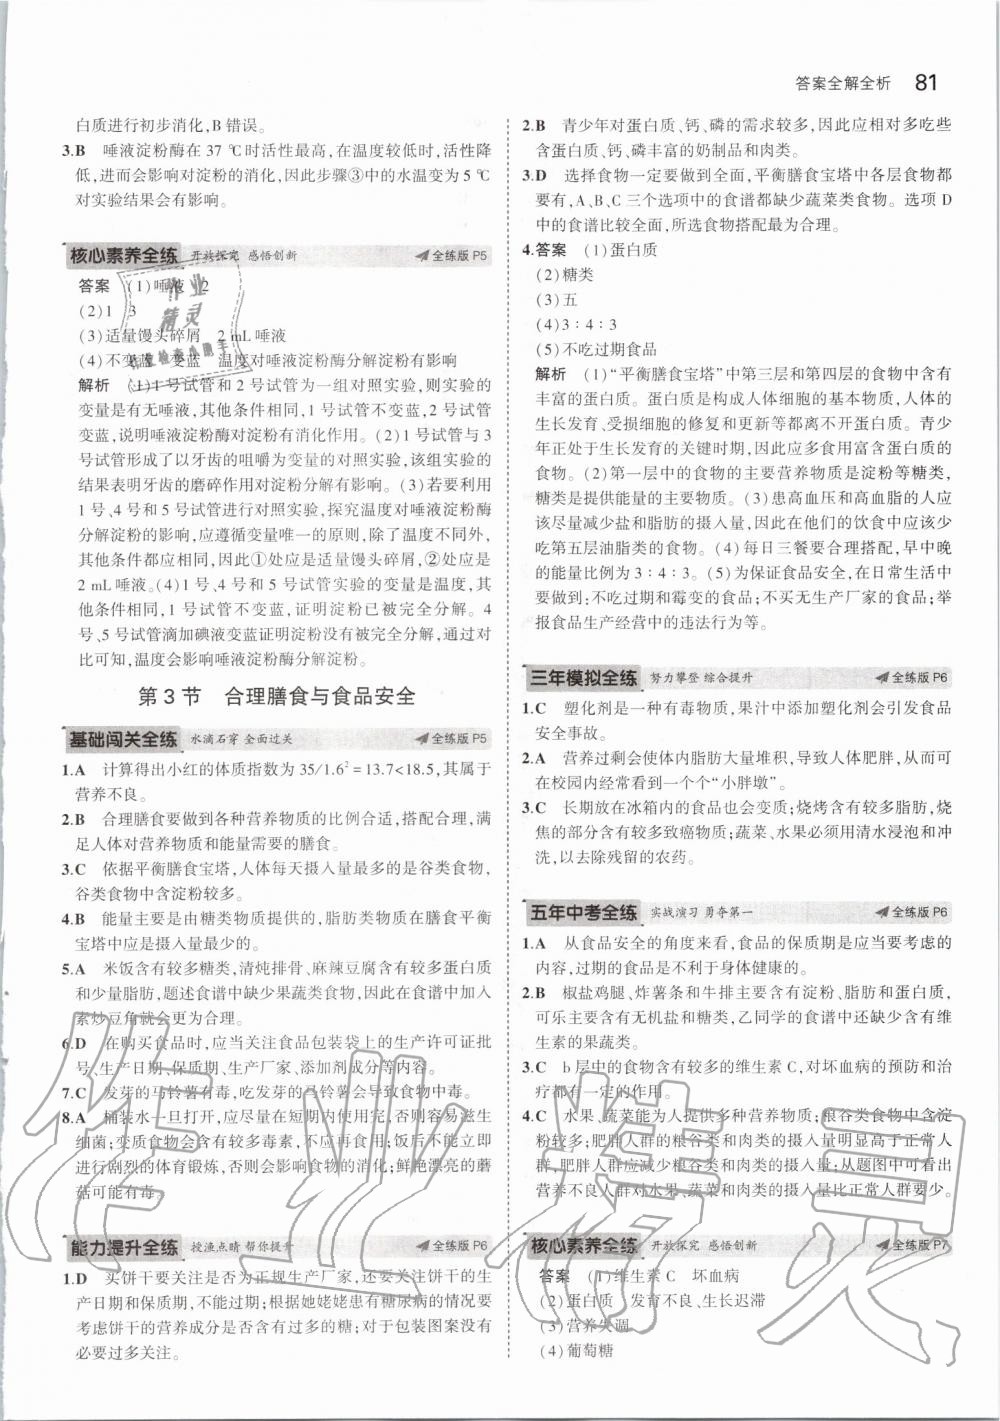 答案全解全析 81
白质进行初步消化,B 错误。
3.B 唾液淀粉酶在 37 ℃时活性最高,在温度较低时,活性降
低,进而会影响对淀粉的消化,因此步骤③中的水温变为 5 ℃
对实验结果会有影响。
核心素养全练 开放探究 感悟创新 全练版 P5
答案 (1)唾液 2
(2)1 3
(3)适量馒头碎屑 2 mL唾液
(4)不变蓝 变蓝 温度对唾液淀粉酶分解淀粉有影响
解析 (1)1 号试管和 2 号试管为一组对照实验,则实验的
变量是有无唾液,其他条件相同,1 号试管不变蓝,2 号试管
变蓝,说明唾液淀粉酶对淀粉有消化作用。(2)1 号试管与 3
号试管形成了以牙齿的咀嚼为变量的对照实验,该组实验的
结果表明牙齿的磨碎作用对淀粉分解有影响。(3)若要利用
1 号、4 号和 5 号试管进行对照实验,探究温度对唾液淀粉酶
分解淀粉的影响,应遵循变量唯一的原则,除了温度不同外,
其他条件都应相同,因此①处应是适量馒头碎屑,②处应是
2 mL唾液。(4)1 号、4 号和 5 号试管实验的变量是温度,其
他条件相同,1 号试管不变蓝,证明淀粉已被完全分解。4
号、5 号试管滴加碘液变蓝证明淀粉没有被完全分解,通过对
比可知,温度会影响唾液淀粉酶分解淀粉。
第 3 节 合理膳食与食品安全
基础闯关全练 水滴石穿 全面过关 全练版 P5
1.A 计算得出小红的体质指数为 35/1.6²=13.7<18.5,其属于
营养不良。
2.B 合理膳食要做到各种营养物质的比例合适,搭配合理,满
足人体对营养物质和能量需要的膳食。
3.C 依据平衡膳食宝塔,人体每天摄入量最多的是谷类食物,
谷类食物中含淀粉较多。
4.B 能量主要是由糖类物质提供的,脂肪类物质在膳食平衡
宝塔中应是摄入量最少的。
5.A 米饭含有较多糖类,清炖排骨、麻辣豆腐含有较多蛋白质
和少量脂肪,题述食谱中缺少果蔬类食物,因此在食谱中加入
素炒豆角就会更为合理。
6.D 在购买食品时,应当关注食品包装袋上的生产许可证批
号、生产日期、保质期、生产厂家、添加剂、营养成分等内容。
7.C 发芽的马铃薯有毒,吃发芽的马铃薯会导致食物中毒。
8.A 桶装水一旦打开,应尽量在短期内使用完,否则容易滋生
细菌;变质食物会含有较多毒素,不应再食用;饭后不能立即
进行剧烈的体育锻炼,否则会影响食物的消化;鲜艳漂亮的蘑
菇可能有毒。
能力提升全练 授渔点睛 帮你提升 全练版 P6
1.D 买饼干要关注是否为正规生产厂家,还要关注饼干的生
产日期和保质期,不能过期;根据她姥姥患有糖尿病的情况要
考虑饼干的营养成分是否含有过多的糖;对于包装图案没有
必要过多关注。
2.B 青少年对蛋白质、钙、磷的需求较多,因此应相对多吃些
含蛋白质、钙、磷丰富的奶制品和肉类。
3.D 选择食物一定要做到全面,平衡膳食宝塔中各层食物都
要有,A、B、C 三个选项中的食谱都缺少蔬菜类食物。选项 D
中的食谱比较全面,所选食物搭配最为合理。
4.答案 (1)蛋白质
(2)糖类
(3)五
(4)3∶4∶3
(5)不吃过期食品
解析 (1)“平衡膳食宝塔”中第三层和第四层的食物中含有
丰富的蛋白质。蛋白质是构成人体细胞的基本物质,人体的
生长发育、受损细胞的修复和更新等都离不开蛋白质。青少
年正处于生长发育的关键时期,因此应多食用富含蛋白质的
食物。(2)第一层中的食物的主要营养物质是淀粉等糖类,
糖类是提供能量的主要物质。(3)患高血压和高血脂的人应
该尽量减少盐和脂肪的摄入量,因此在他们的饮食中应该少
吃第五层油脂类的食物。(4)每日三餐要合理搭配,早中晚
的能量比例为 3∶4∶3。(5)为保证食品安全,在日常生活中
要做到:不吃过期和霉变的食品;不买无生产厂家的食品;举
报食品生产经营中的违法行为等。
三年模拟全练 努力攀登 综合提升 全练版 P6
1.C 塑化剂是一种有毒物质,果汁中添加塑化剂会引发食品
安全事故。
2.A 营养过剩会使体内脂肪大量堆积,导致人体肥胖,从而导致
在校园内经常看到一个个“小胖墩”。
3.C 长期放在冰箱内的食品也会变质;烧烤含有较多脂肪,烧
焦的部分含有较多致癌物质;蔬菜、水果必须用清水浸泡和冲
洗,以去除残留的农药。
五年中考全练 实战演习 勇夺第一 全练版 P6
1.A 从食品安全的角度来看,食品的保质期是应当要考虑的
内容,过期的食品是不利于身体健康的。
2.B 椒盐鸡腿、炸薯条和牛排主要含有淀粉、脂肪和蛋白质,
可乐主要含有无机盐和糖类,乙同学的食谱中还缺少含有维
生素的果蔬类。
3.C b 层中的食物含有较多的维生素 C,对坏血病的预防和治
疗都有一定的作用。
4.C 水果、蔬菜能为人类提供多种营养物质;粮谷类食物中含淀
粉较多;肥胖人群的粮谷类和肉类的摄入量明显高于正常人
群,肥胖人群应减少粮谷类和肉类的摄入量;从题图中可看出
营养不良人群对水果、蔬菜和肉类的摄入量比正常人群要少。
核心素养全练 开放探究 感悟创新 全练版 P7
答案 (1)维生素 C 坏血病
(2)蛋白质 发育不良、生长迟滞
(3)营养失调
(4)葡萄糖
作业精灵